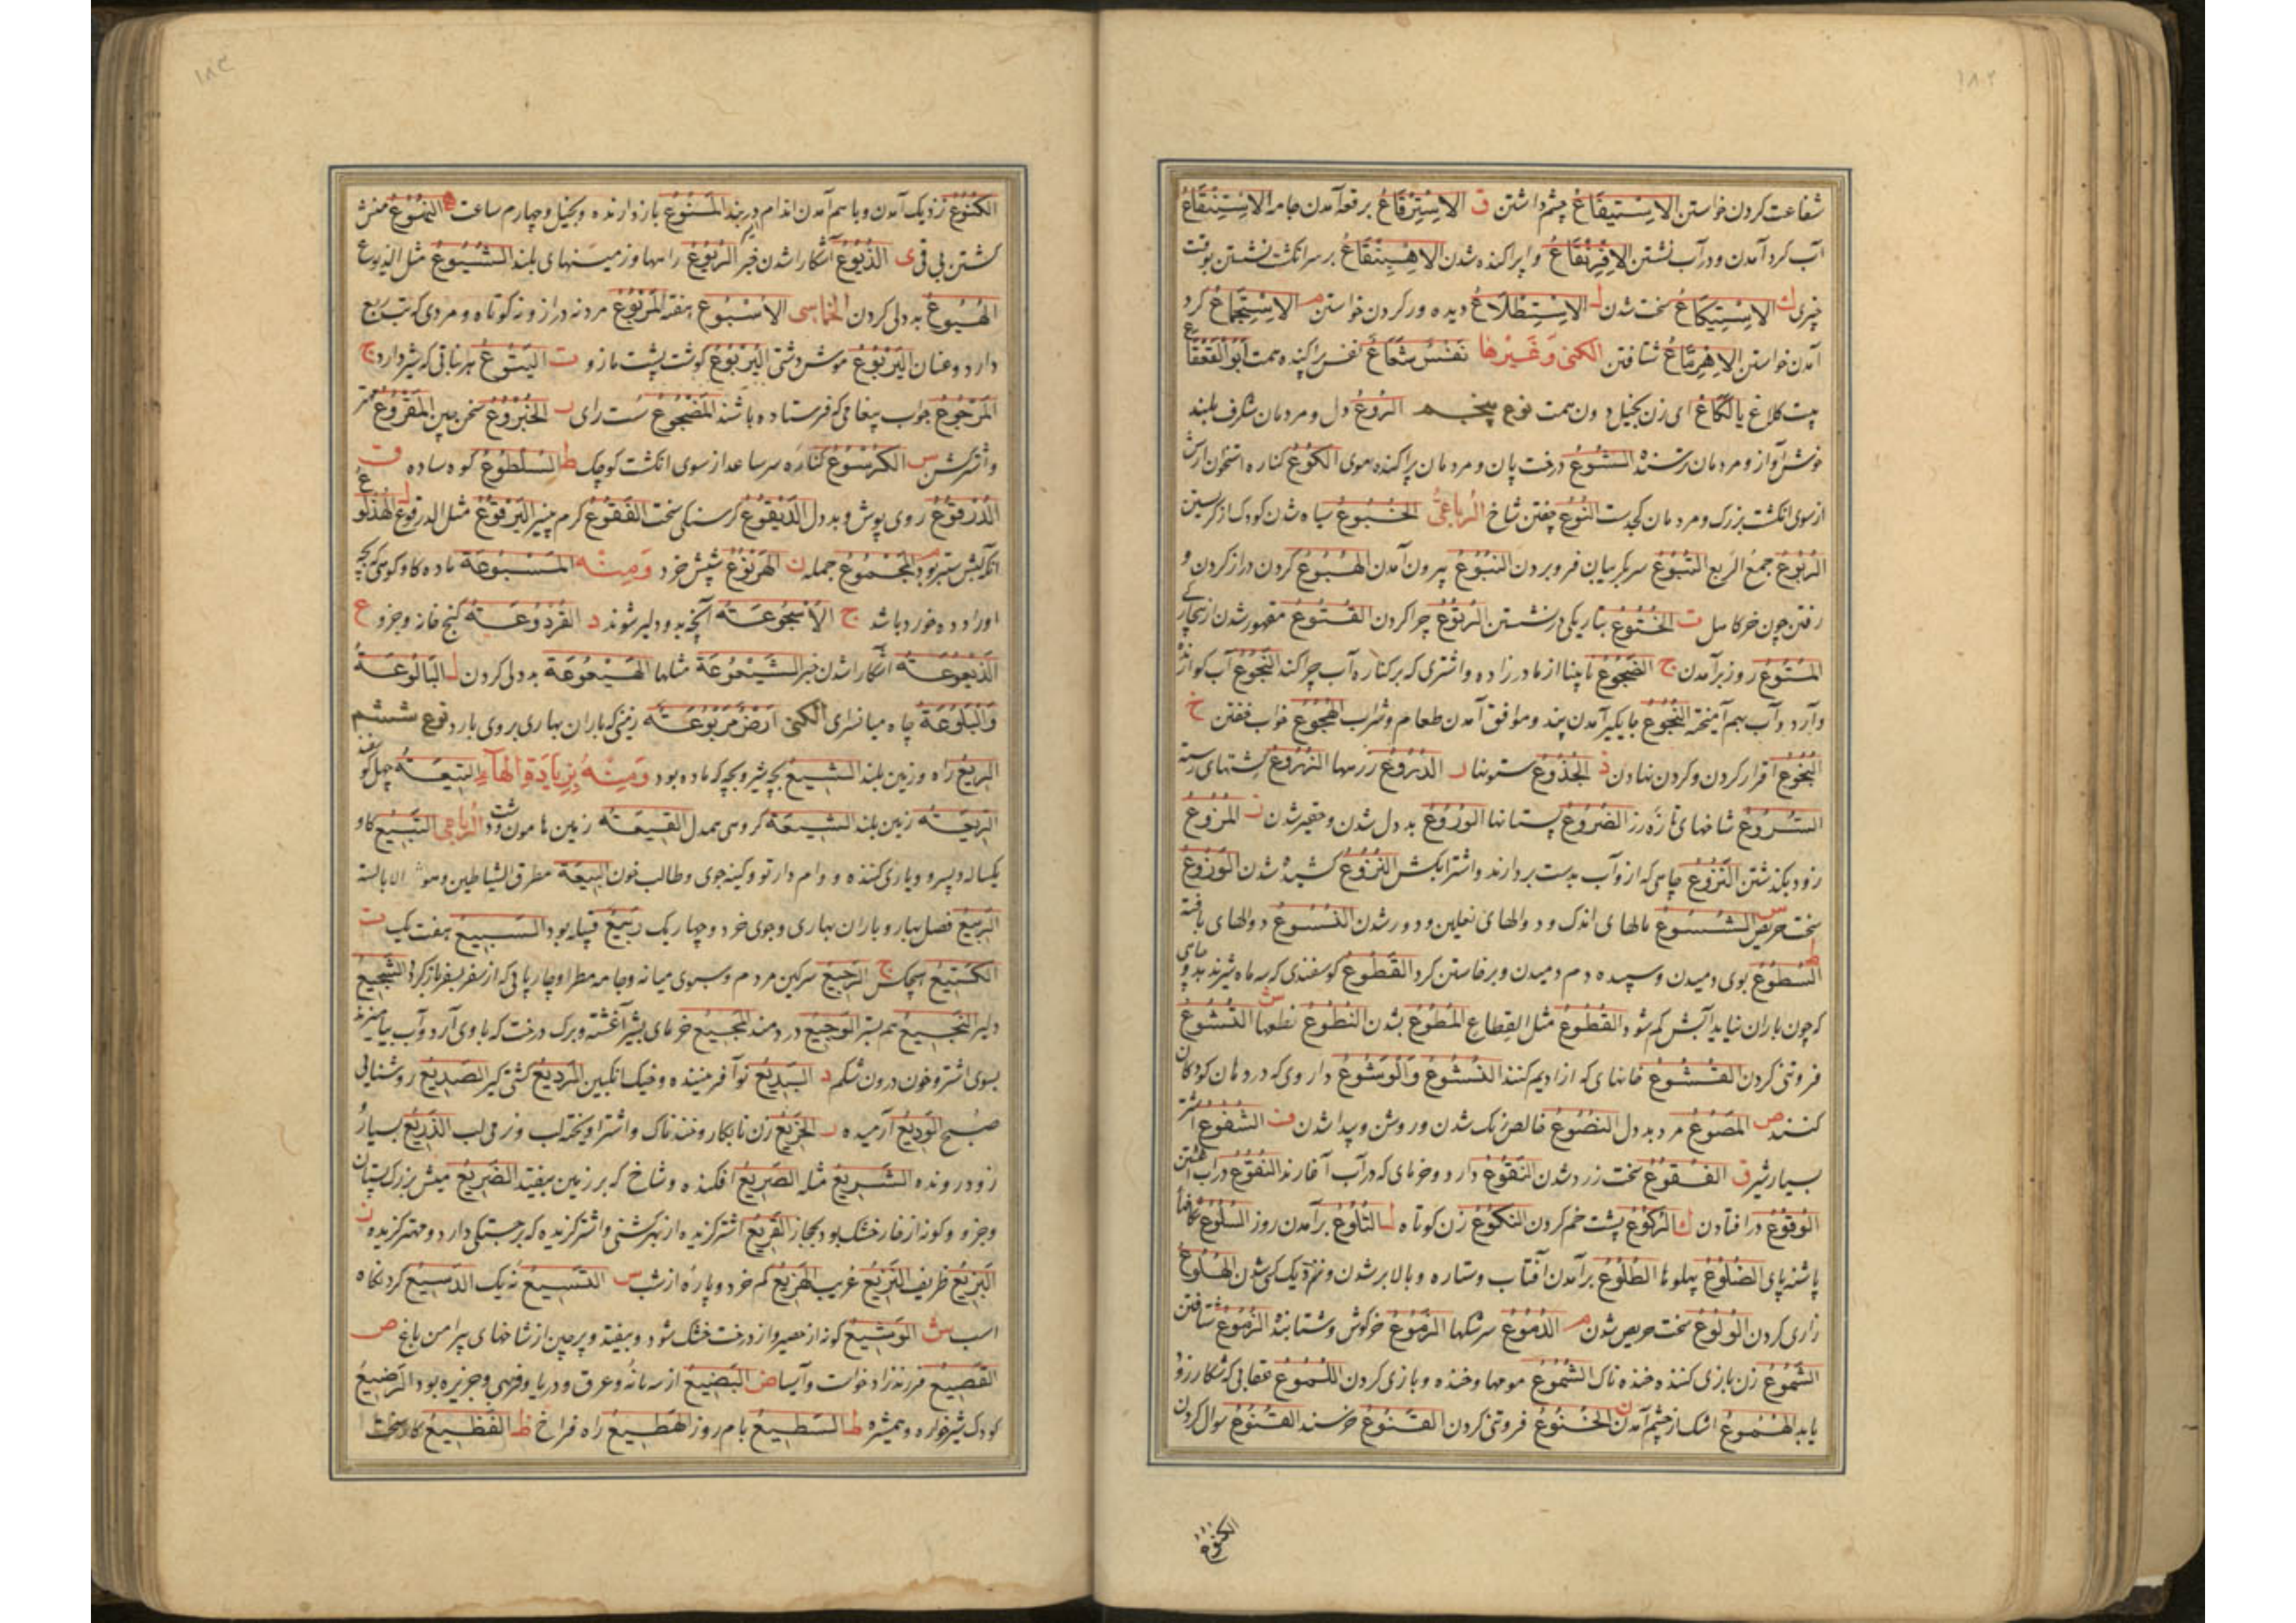 ۱۸۲
شفاعت کردن خواستن الاِسْتیفَاعُ چشم داشتن ق الاِسْتِرْقَاعُ برقعه آمدن جامه الاِسْتِنْقَاعُ
آب کرد آمدن و در آب نشستن الاِفْرِنْقَاعُ و اپراکنده شدن الاِهْبِنْقَاعُ بر سر انکشت نشستن بوقت
چیزی ك الاِسْتِیکَاعُ سخت شدن ل الاِسْتِطْلَاعُ دیده ور کردن خواستن م الاِسْتِجْمَاعُ کرد
آمدن خواستن الاِهْرِمَّاعُ شتافتن الکنی وَغَیْرها نَفَسٌ شَعَاعٌ نفس پراکنده همت اَبُو القَعْقَاعِ
کلاغ یَا لَکَاعِ ای زن بخیل دون همت نوع پنجم الرُوعُ دل و مردمان شکرف بلند
الشُوعُ درخت بان و مردمان پراکنده موی الکُوعُ کناره استخوان ارش
از سوی انکشت بزرک و مردمان کج دست النُوعُ شاخ الرُباعیُّ الخُبُوعُ سیاه شدن کودک از کریستن
الرُبُوعُ جمعُ الرَبع القُبُوعُ سر بکریبان فرو بردن النُبُوعُ بیرون آمدن الهُبُوعُ کردن دراز کردن و
رفتن چون خر کاهل ت الخُتُوعُ بتاریکی در نشستن الرُتُوعُ چرا کردن
المُتُوعُ روز برآمدن ج الضَجُوعُ نابینا از مادر زاده و اشتری که بر کناره آب چرا کند النَجُوعُ آب کوارنده
و آرد و آب بهم آمیخته النُجُوعُ جایکیر آمدن پند و موافق آمدن طعام و شراب الهُجُوعُ خواب خفتن خ
البُخُوعُ اقرار کردن و کردن نهادن ذ الجُذُوعُ ستونها ر الدُرُوعُ زرهها الزُرُوعُ کشتهای رسته
السُرُوعُ شاخهای تازه رز الضُرُوعُ پستانها الوُرُوعُ بد دل شدن و حقیر شدن ز المُزُوعُ
زود بکذشتن النَزُوعُ چاهی که از و آب بدست بردارند و اشتر آبکش النُزُوعُ کشیده شدن الوَزُوعُ
سخت حریص س الشُسُوعُ مالهای اندک و دوالهای نعلین و دور شدن النُسُوعُ دوالهای بافته
ط السُطُوعُ بوی دمیدن و سپیده دم دمیدن و برخاستن کرد القَطُوعُ کوسفندی که سه ماه شیر ندهد
که چون باران نیاید آبش کم شود القُطُوعُ مثل القِطاعِ المُطُوعُ بشدن النُطُوعُ نطعها ش الخُشُوعُ
فروتنی کردن القُشُوعُ خانهای که از ادیم کنند النُشُوعُ وَالوَشُوعُ داروی که در دهان کودکان
کنند ص المَصُوعُ مرد بد دل النُصُوعُ خالص رنک شدن و روشن و پیدا شدن ف الشَفُوعُ اشتر
بسیار شیر ق الفُقُوعُ سخت زرد شدن النَقُوعُ دارو و خرمای که در آب آغارند النُقُوعُ در آب آغشتن
الوُقُوعُ در افتادن ك الرُکُوعُ پشت خم کردن النَکُوعُ زن کوتاه ل التُلُوعُ برآمدن روز السُلُوعُ
پاشنه پای الضُلُوعُ پهلوها الطُلُوعُ برآمدن آفتاب و ستاره و بالا بر شدن و نزدیک کسی شدن الهُلُوعُ
زاری کردن الوُلُوعُ سخت حریص شدن م الدُمُوعُ سرشکها الزَمُوعُ خرکوش شتابنده الزُمُوعُ شتافتن
الشَمُوعُ زن بازی کننده خنده ناک الشُمُوعُ مومها و خنده و بازی کردن اللَمُوعُ عقابی که شکار زود
یابد الهُمُوعُ اشک از چشم آمدن ن الخُنُوعُ فروتنی کردن القَنُوعُ خرسند القُنُوعُ سوال کردن
الکنوع
۱۸۳
الکُنُوعُ نزدیک آمدن و باهم آمدن اندام در بند المَنُوعُ باز دارنده و بخیل و چهارم ساعت ه التَهَوُّعُ منش
کشتن بی قی ی الذُیُوعُ آشکارا شدن خبر الرُیُوعُ راهها و زمینهای بلند الشُیُوعُ مثل الذیوع
الهُیُوعُ بد دلی کردن الخماسی الاُسْبُوعُ هفته المَرْبُوعُ مرد نه دراز و نه کوتاه و مردی که تب ربع
دارد و عنان الیَرْبُوعُ موش دشتی الیَرْبُوعُ کوشت پشت مازو ت الیَتُوعُ هر نباتی که شیر دارد ج
المَرْجُوعُ جواب پیغامی که فرستاده باشند المَضْجُوعُ سست رای ر المَقْرُوعُ مهتر
و اشتر کشن س الکُرْسُوعُ کناره سر ساعد از سوی انکشت کوچک ط السُلْطُوعُ کوه ساده ف ق
الدُرْقُوعُ روی پوش و بد دل الدَیْقُوعُ کرسنکی سخت الفَقُّوعُ کرم پنیر الیَرْقُوعُ مثل الدرقوع
م المَجْمُوعُ جمله ن الهَرْنُوعُ شپش خرد وَمِنْهُ المَسْبُوعَةُ ماده کاو کوهی که بچه
او را دده خورد باشد ج الاُشْجُوعَةُ آنچه بدو دلیر شوند د القُرْدُوعَةُ کنج خانه و جز و ع
الذَیْعُوعَةُ آشکارا شدن خبر الشَیْعُوعَةُ مثلها الهَیْعُوعَةُ بد دلی کردن ل البَالُوعَةُ
وَالبَلُّوعَةُ چاه میان سرای الکنی اَرْضٌ مَرْبُوعَةٌ زمینی که باران بهاری بر وی بارد نوع ششم
الرِیعُ راه و زمین بلند الشِیعُ بچه شیر و بچه که ماده بود وَمِنْهُ بِزِیَادَةِ الهَآءِ التِیعَةُ چهل کوسفند
الرِیعَةُ زمین بلند الشِیعَةُ کروهی همدل القِیعَةُ زمین هامون و دشت الرُباعی التَبِیعُ کاو
یکساله و پسرو و یاری کننده و وام دار تو و کینه جوی و طالب خون
الرَبِیعُ فصل بهار و باران بهاری و جوی خرد و چهار یک رَبِیعُ قبیله بود السَبِیعُ هفت یک ت
الکَتِیعُ هیچکس ج الرَجِیعُ سرکین مردم و سبوی میانه و جامه مطرا و چارپایی که از سفر بسفر باز کردد الشَجِیعُ
دلیر الضَجِیعُ هم بستر الوَجِیعُ دردمند المَجِیعُ خرمای بشیر آغشته و برک درخت که با وی آرد و آب بیامیزند
بسوی اشتر و خون درون شکم د البَدِیعُ نو آفریننده و خیک انکبین الرَدِیعُ الصَدِیعُ روشنایی
صبح الوَدِیعُ آرمیده ر الخَرِیعُ زن نابکار و خنده ناک و اشتر آویخته لب و نرمی لب الذَرِیعُ بسیار و
زود رونده السَرِیعُ مثله الصَرِیعُ افکنده و شاخ که بر زمین بیفتد الضَرِیعُ میش بزرک پستان
و جز و و کونه از خار خشک بود بحجاز القَرِیعُ اشتر کزیده از بهر کشنی و اشتر کزیده که برجستکی دارد و مهتر کزیده ز
البَزِیعُ ظریف النَزِیعُ غریب الهَزِیعُ کم خرد و پاره از شب س الدَسِیعُ کردنکاه
اسب ش الوَشِیعُ کونه از حصیر و از درخت خشک شود و بیفتد و پرچین از شاخهای پیرامن باغ ص
القَصِیعُ فرزند زاد و آسیا ض البَضِیعُ و عرق و دریا و فربهی و جزیره بود الرَضِیعُ
کودک شیرخواره و همشیره ط السَطِیعُ بام روز الهَطِیعُ راه فراخ ظ الفَظِیعُ کار سخت